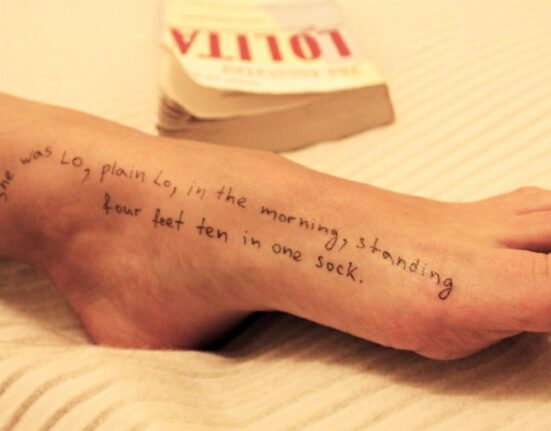 LOLITA
The Annotated
she was Lo, plain Lo, in the morning, standing
four feet ten in one sock.